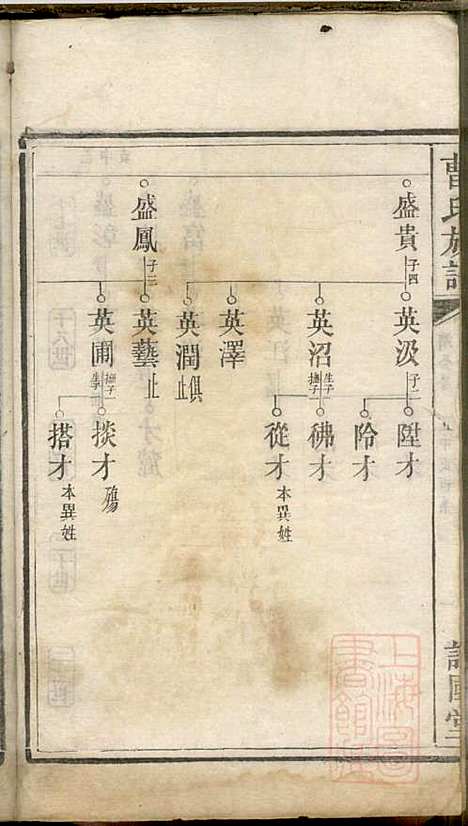 曹氏族譜
盛貴 子四
英汲 子二
陞才
阾才
英沼 生子 撫子
彿才
從才 本異姓
英澤
英潤 俱止
盛鳳 子二
英藝 止
英圃 撫子
掞才 殤
搭才 本異姓
上海圖書館藏